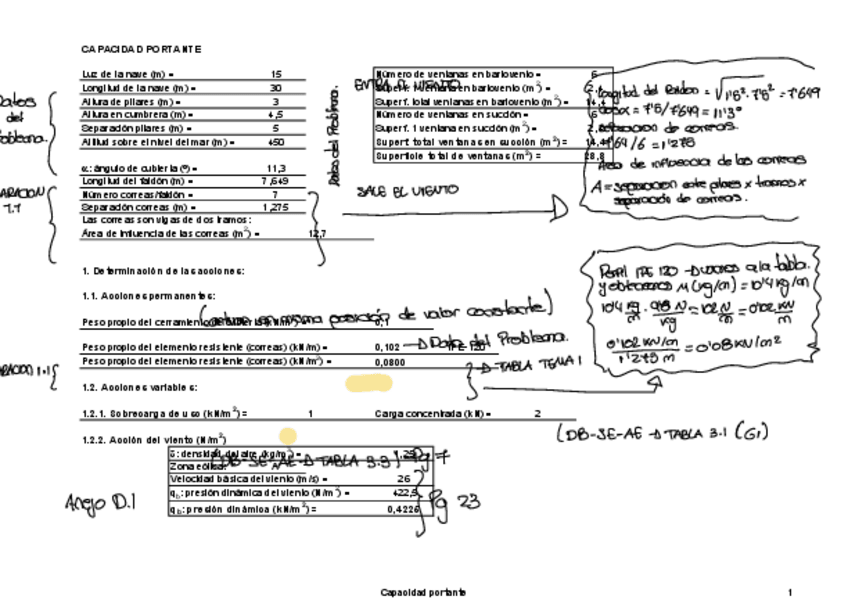 CAPACIDAD PORTANTE
Luz de la nave (m) = 15
Longitud de la nave (m) = 30
Altura de pilares (m) = 3
Altura en cumbrera (m) = 4,5
Separación pilares (m) = 5
Altitud sobre el nivel del mar (m) = 450
α: ángulo de cubierta (º) = 11,3
Longitud del faldón (m) = 7,649
Número correas/faldón = 7
Separación correas (m) = 1,275
Las correas son vigas de dos tramos:
Área de influencia de las correas (m²) = 12,7
Datos
del
Problema.
Datos del Problema.
ENTRA EL VIENTO
Número de ventanas en barlovento = 6
Superf. total ventanas en barlovento (m²) = 14,4
Número de ventanas en succión = 6
Superf. 1 ventana en succión (m²) =
Superf total ventanas en succión (m²) = 14,4
Superficie total de ventanas (m²) = 28,8
SALE EL VIENTO
Longitud del faldón = √1'5² · 7'5² = 7'649
= 7'5/7'649 = 11'3°
separación de correas.
/6 = 1'275
Área de influencia de las correas
A = separación entre pilares x tramos x
separación de correas.
1. Determinación de las acciones:
1.1. Acciones permanentes:
Peso propio del cerramiento 0,1
Peso propio del elemento resistente (correas) (kN/m) = 0,102 IPE-120
Dato del Problema.
Peso propio del elemento resistente (correas) (kN/m²) = 0,0800
TABLA TEMA 1
Perfil IPE 120 a la tabla.
y obtenemos M(kg/m) = 10'4 kg/m
10'4 kg/m · 9'8 N/kg = 102 N/m = 0'102 kN/m
0'102 kN/m / 1'275 m = 0'08 kN/m²
1.2. Acciones variables:
1.2.1. Sobrecarga de uso (kN/m²) = 1 Carga concentrada (kN) = 2
(DB-SE-AE → TABLA 3.1 (G1)
1.2.2. Acción del viento (N/m²)
δ: densidad del aire (kg/m³) = 1,25
Zona eólica: A
(DB-SE-AE → TABLA 3.3) Pg 7
Velocidad básica del viento (m/s) = 26
qb: presión dinámica del viento (N/m²) = 422,5
qb: presión dinámica (kN/m²) = 0,4225
Anejo D.1
Pg 23
Capacidad portante 1